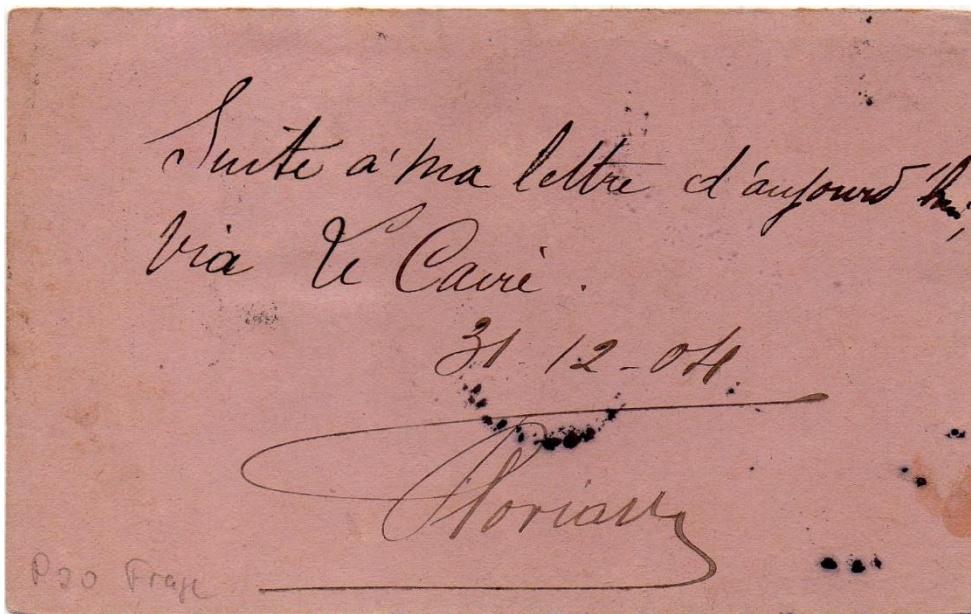 Suite a' ma lettre d'aujourd'hui,
via Le Caire.
31-12-04
Florian
P20 Frage